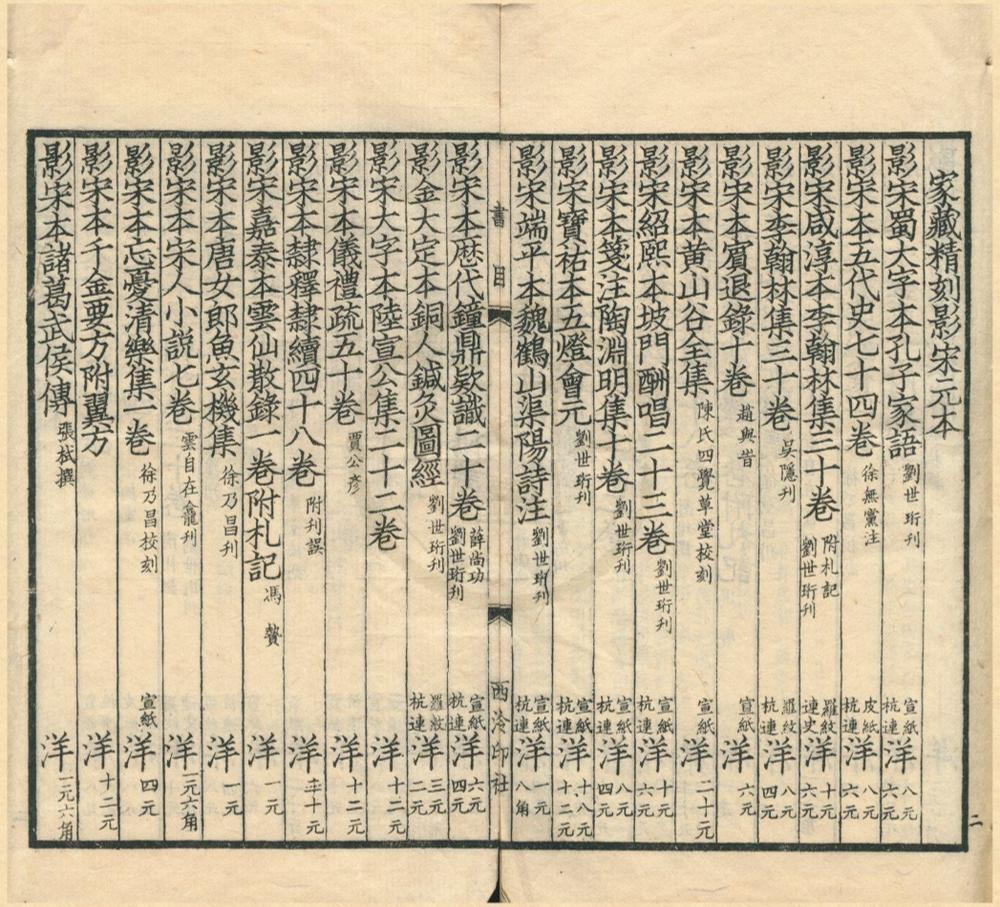 家藏精刻影宋元本
影宋蜀大字本孔子家語 劉世珩刋 宣紙 杭連 洋 八元 六元
影宋本五代史七十四卷 徐無黨注 皮紙 杭連 洋 八元 六元
影宋咸淳本李翰林集三十卷 附札記 劉世珩刋 羅紋 連史 洋 十元 六元
影宋李翰林集三十卷 吳隱刋 羅紋 杭連 洋 八元 四元
影宋本賓退錄十卷 趙與旹 宣紙 洋 六元
影宋本黃山谷全集 陳氏四覺草堂校刻 宣紙 洋 二十元
影宋紹熙本坡門酬唱二十三卷 劉世珩刋 宣紙 杭連 洋 十元 六元
影宋本箋注陶淵明集十卷 劉世珩刋 宣紙 杭連 洋 八元 四元
影宋寶祐本五燈會元 劉世珩刋 宣紙 杭連 洋 十八元 十二元
影宋端平本魏鶴山渠陽詩注 劉世珩刋 宣紙 杭連 洋 一元 八角
書目 西泠印社 二
影宋本歷代鐘鼎欵識二十卷 薛尚功 劉世珩刋 宣紙 杭連 洋 六元 四元
影金大定本銅人鍼灸圖經 劉世珩刋 羅紋 杭連 洋 三元 二元
影宋大字本陸宣公集二十二卷 洋 十二元
影宋本儀禮疏五十卷 賈公彥 洋 十二元
影宋本隸釋隸續四十八卷 附刋誤 洋 十元
影宋嘉泰本雲仙散錄一卷附札記 馮贄 洋 一元
影宋本唐女郎魚玄機集 徐乃昌刋 洋 一元
影宋本宋人小說七卷 雲自在龕刋 洋 三元六角
影宋本忘憂清樂集一卷 徐乃昌校刻 宣紙 洋 四元
影宋本千金要方附翼方 洋 十二元
影宋本諸葛武侯傳 張栻撰 洋 一元六角